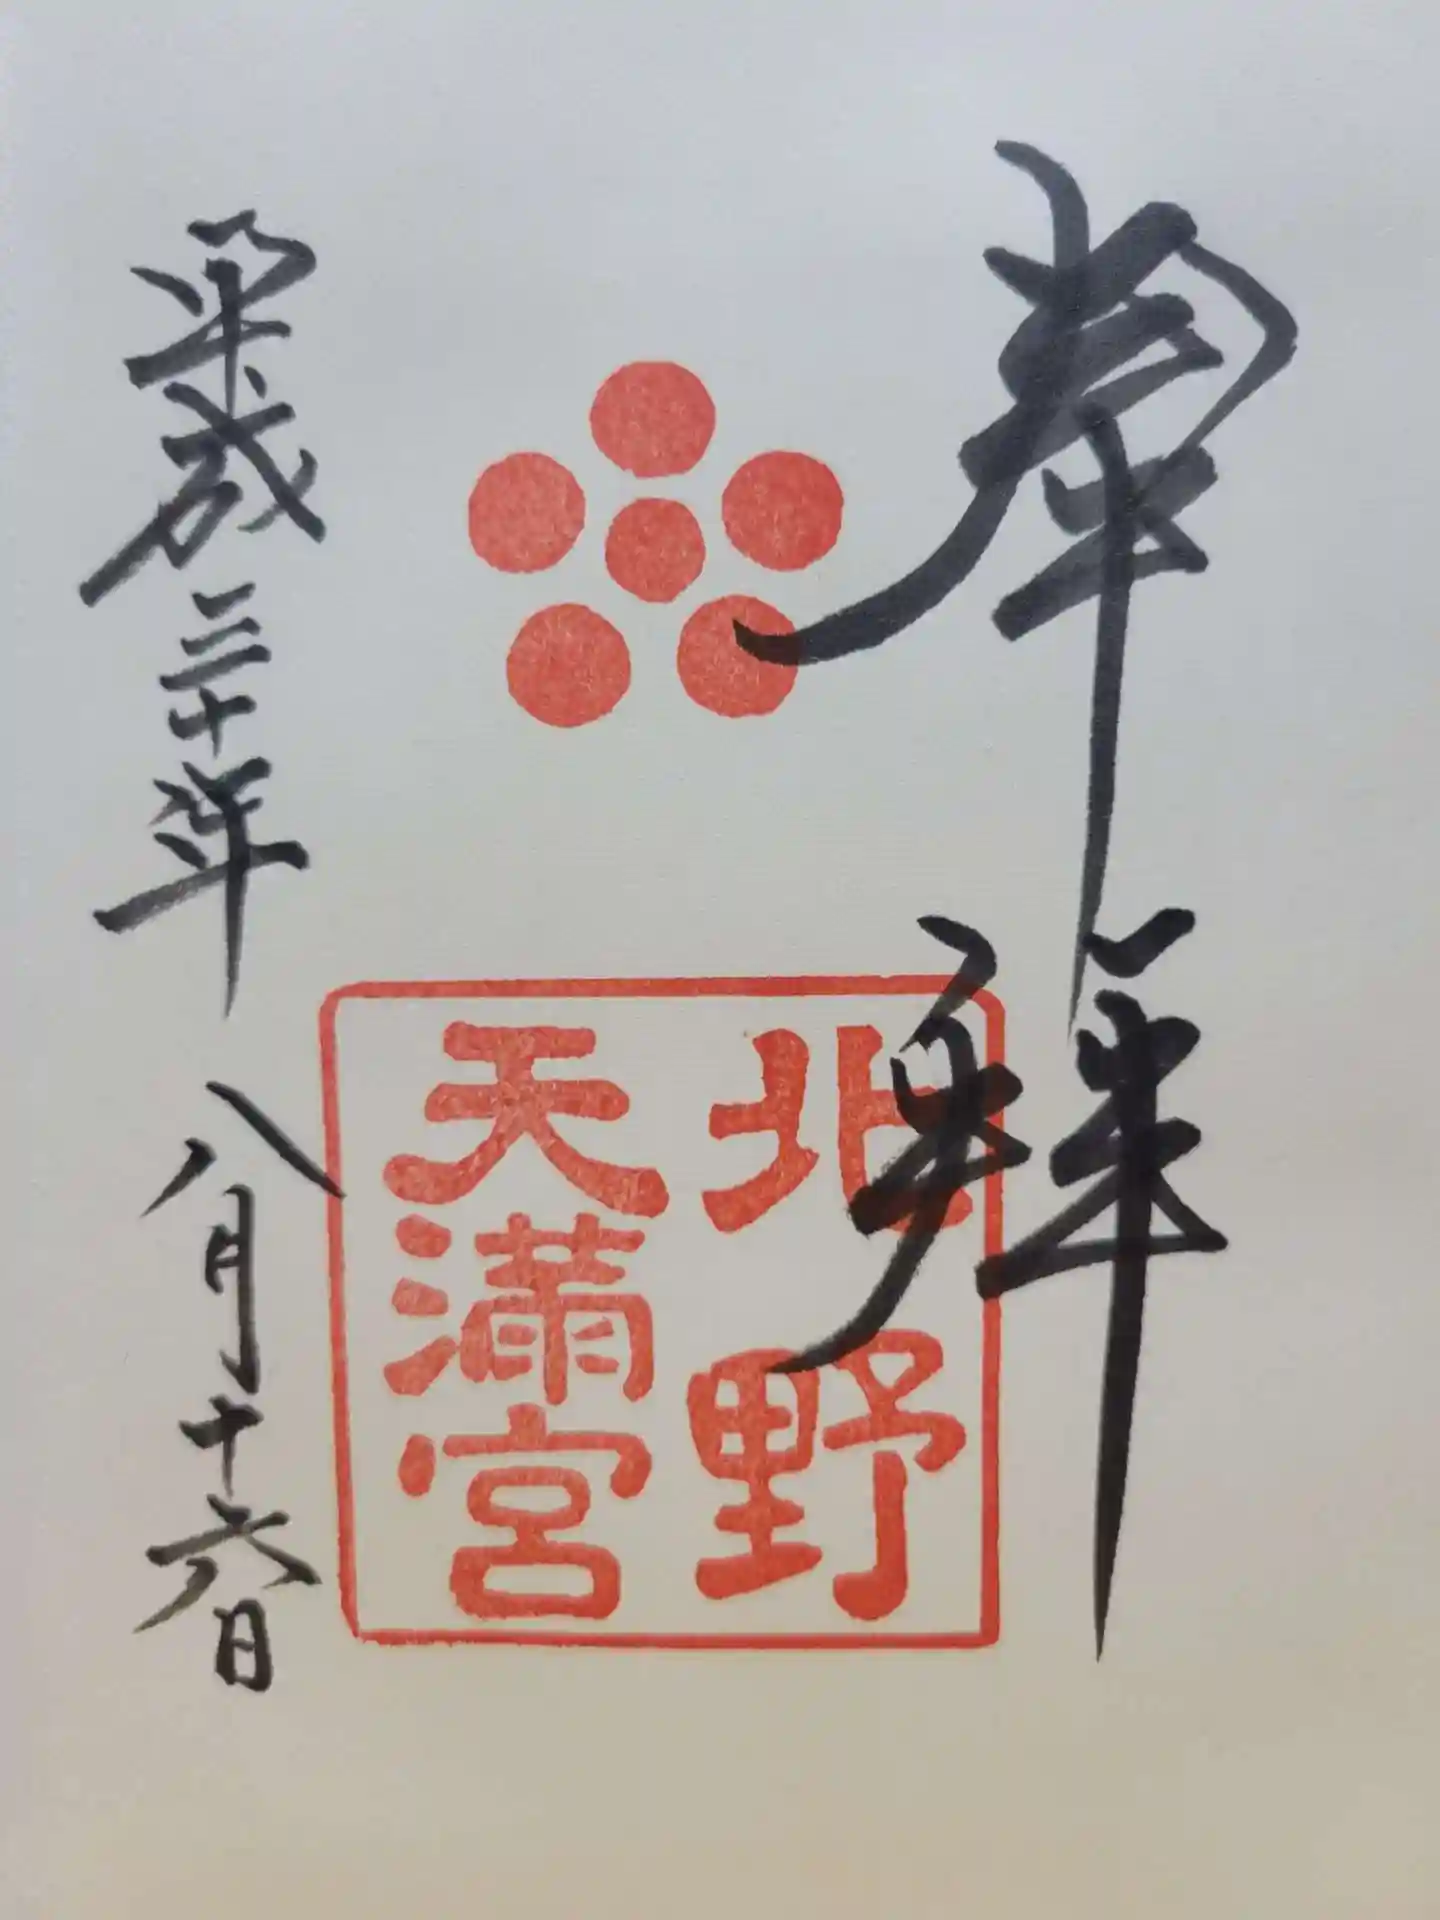 奉拝
北野
天満宮
平成三十年 八月十六日